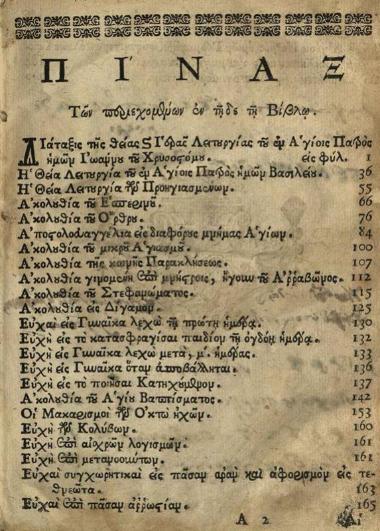 ΠΙ´ΝΑΞ
Τῶν περιεχομένων ἐν τῇδε τῇ Βίβλῳ.
ΔΙάταξις τῆς θείας & Ἱερᾶς Λειτουργίας τοῦ ἐν Ἁγίοις Πατρὸς
ἡμῶν Ἰωάννου τοῦ Χρυσοστόμου. εἰς φύλ. 1
Ἡ Θεία Λειτουργία τοῦ ἐν Ἁγίοις Πατρὸς ἡμῶν Βασιλείου. 36
Ἡ Θεία Λειτουργία τῶν Προηγιασμένων. 55
Ἀκολουθία τοῦ Ἑσπερινοῦ. 66
Ἀκολουθία τοῦ Ὄρθρου. 76
Ἀποστολοευαγγέλια εἰς διαφόρους μνήμας Ἁγίων. 84
Ἀκολουθία τοῦ μικροῦ Ἁγιασμοῦ. 100
Ἀκολουθία τῆς κοινῆς Παρακλήσεως. 107
Ἀκολουθία γινομένη ἐπὶ μνήστροις, ἤγουν τοῦ Ἀρραβῶνος. 112
Ἀκολουθία τοῦ Στεφανώματος. 115
Ἀκολουθία εἰς Δίγαμον. 125
Εὐχαὶ εἰς Γυναῖκα λεχὼ τῇ πρώτῃ ἡμέρᾳ. 130
Εὐχὴ εἰς τὸ κατασφραγίσαι παιδίον τῇ ὀγδόῃ ἡμέρᾳ. 132
Εὐχὴ εἰς Γυναῖκα λεχὼ μετὰ, μ'. ἡμέρας. 133
Εὐχὴ εἰς Γυναῖκα ὅταν ἀποβάλληται. 136
Εὐχὴ εἰς τὸ ποιῆσαι Κατηχούμενον. 137
Ἀκολουθία τοῦ Ἁγίου Βαπτίσματος. 142
Οἱ Μακαρισμοὶ τῶν Ὀκτὼ ἤχων. 153
Εὐχὴ τῶν Κολύβων. 160
Εὐχὴ ἐπὶ αἰσχρῶν λογισμῶν. 161
Εὐχὴ ἐπὶ μετανοούντων. 161
Εὐχαὶ συγχωρητικαὶ εἰς πᾶσαν ἀρὰν καὶ ἀφορισμὸν εἰς τε-
θνεῶτα. 163
Εὐχαὶ ἐπὶ πᾶσαν ἀρρωστίαν. 165
A 2